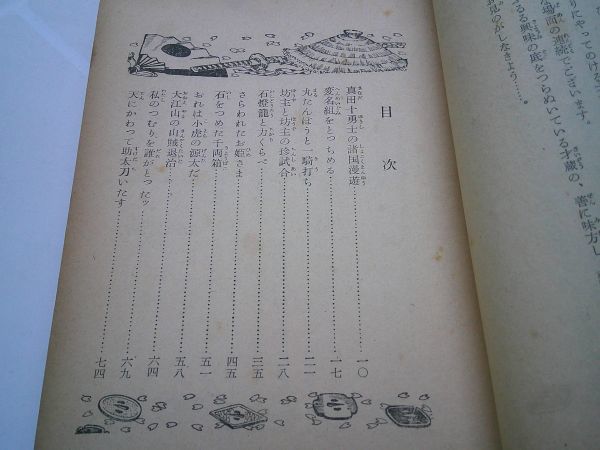 りにやってのける
場面の連続でございます。
る興味の底をつらぬいている才蔵の、善に味方し
見のがしなきよう……。
目次
真田十勇士の諸国漫遊……一〇
変名組をとっちめる……一七
丸たんぼうと一騎打ち……二一
坊主と坊主の珍試合……二八
石燈籠と力くらべ……三五
さらわれたお姫さま……四五
石をつめた千両箱……五一
おれは小虎の源太だ……五八
大江山の山賊退治……六四
私のつむりを誰がとったッ……六九
天にかわって助太刀いたす……七四